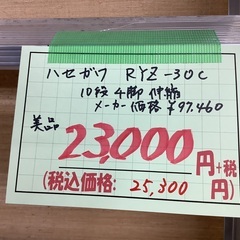 ハセガワ RYZ-30C
10段 4脚伸縮
メーカー価格 ¥97.460
美品
23,000円+税
(税込価格: 25,300 円)